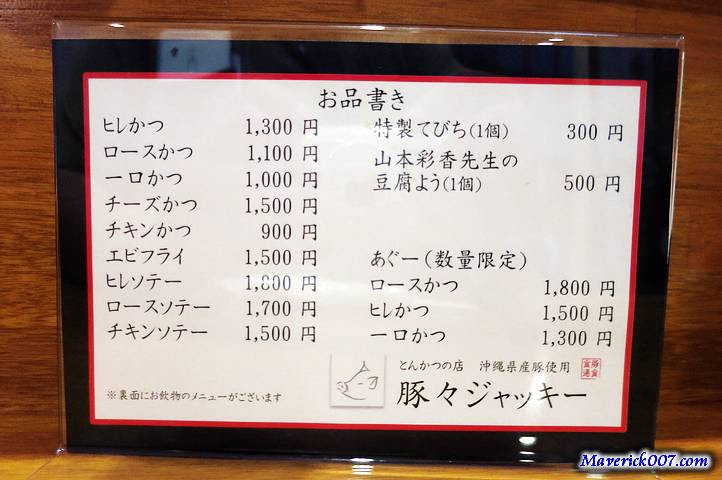 お品書き
ヒレかつ 1,300 円
ロースかつ 1,100 円
一口かつ 1,000 円
チーズかつ 1,500 円
チキンかつ 900 円
エビフライ 1,500 円
ヒレソテー 1,800 円
ロースソテー 1,700 円
チキンソテー 1,500 円
※裏面にお飲物のメニューがございます
特製てびち(1個) 300 円
山本彩香先生の
豆腐よう(1個) 500 円
あぐー(数量限定)
ロースかつ 1,800 円
ヒレかつ 1,500 円
一口かつ 1,300 円
とんかつの店 沖縄県産豚使用
豚々ジャッキー
Maverick007.com